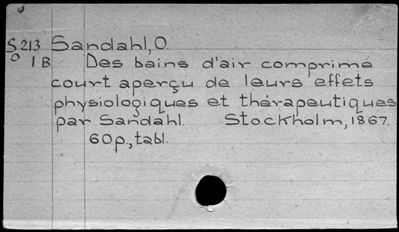 S213 Sandahl, O.
o 1B Des bains d'air comprimé
court aperçu de leurs effets
physiologiques et thérapeutiques
par Sandahl. Stockholm, 1867.
60p., tabl.